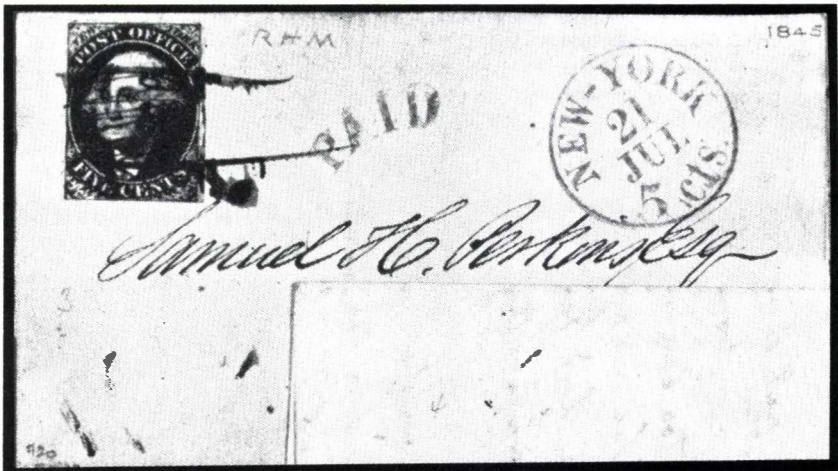 POST OFFICE
FIVE CENTS
RHM
PAID
1845
NEW-YORK
21
JUL
5 cts.
Samuel H. Perkins, Esq